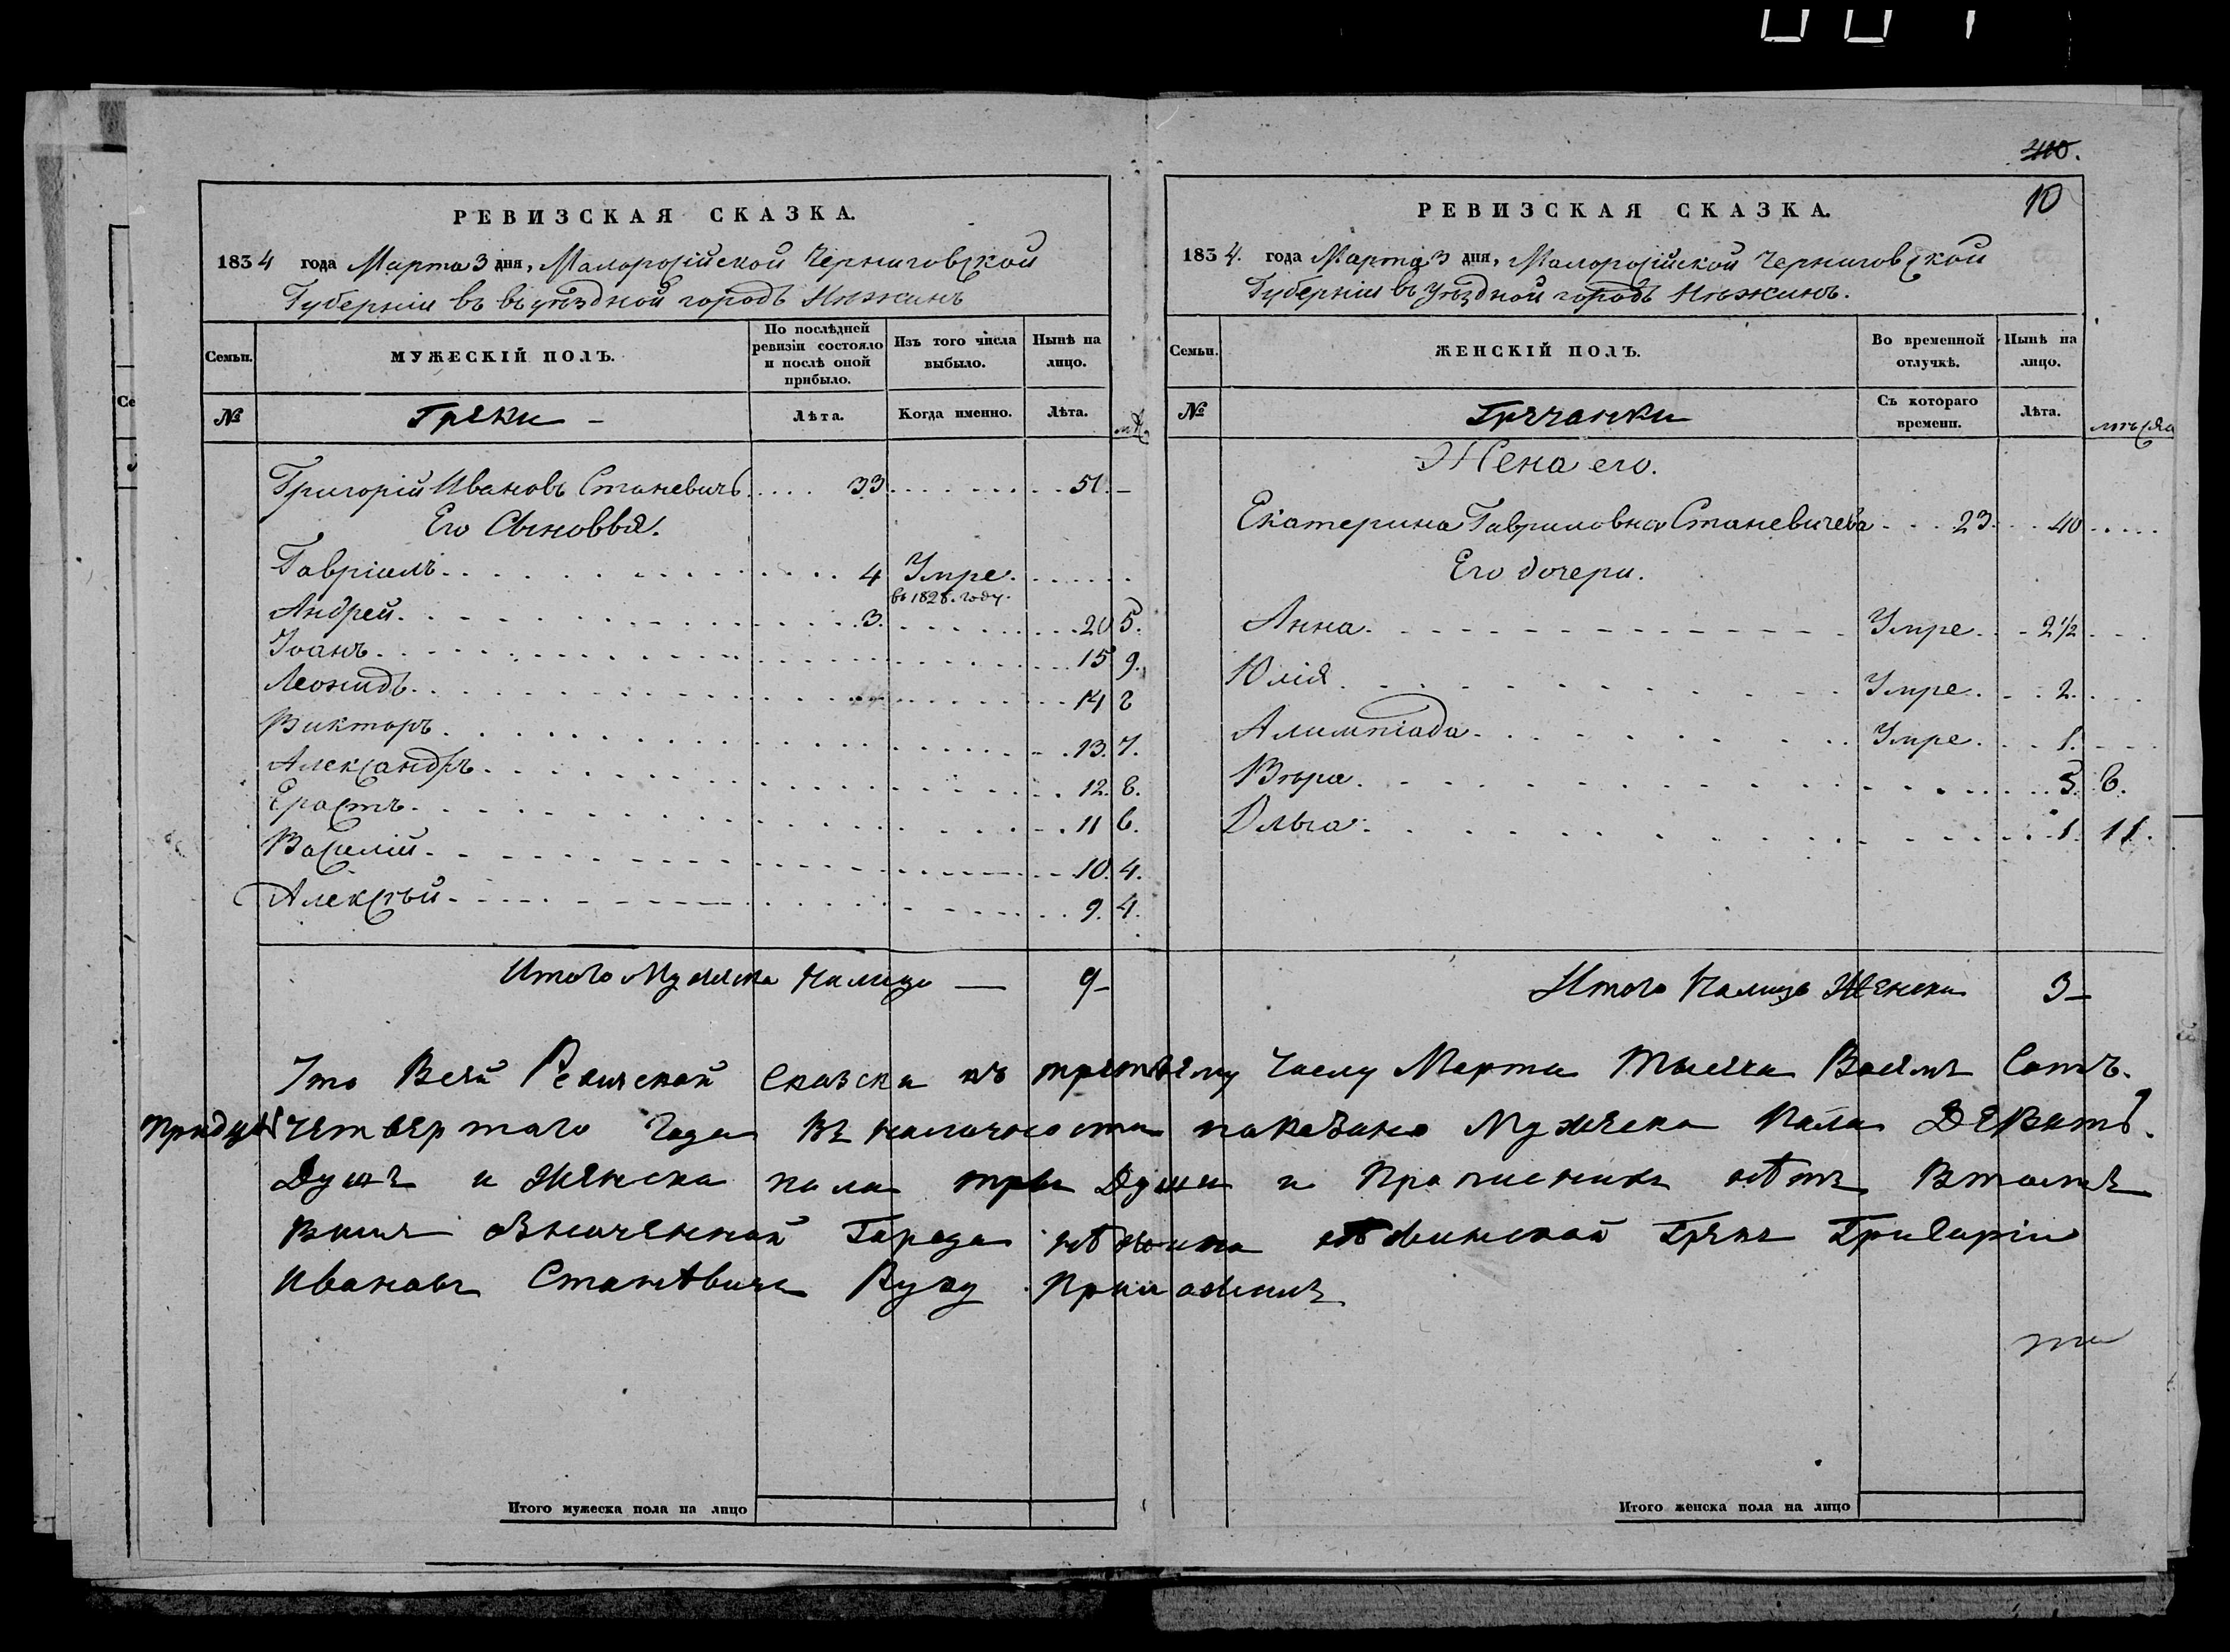 РЕВИЗСКАЯ СКАЗКА.
1834 года Марта 3 дня, Малоросійской Черниговской
Губерніи въ въ уѣздной городѣ Нѣжинѣ
Семьи. МУЖЕСКІЙ ПОЛЪ. По послѣдней ревизіи состояло и послѣ оной прибыло. Изъ того числа выбыло. Нынѣ на лицо.
№ Греки - Лѣта. Когда именно. Лѣта.
Григорій Ивановъ Станевичъ 33 51. -
Его Сыновья.
Гавріилъ 4 Умре
въ 1828. году.
Андрей 3. 20 5.
Іоанъ 15 9.
Леонидъ 14 2
Викторъ 13. 7.
Александръ 12. 8.
Ерастъ 11 6.
Василій 10. 4.
Алексѣй 9. 4.
Итого Мужеска налицо — 9-
410.
10
РЕВИЗСКАЯ СКАЗКА.
1834. года Марта 3 дня, Малоросійской Черниговской
Губерніи въ уѣздной городѣ Нѣжинѣ.
Семьи. ЖЕНСКІЙ ПОЛЪ. Во временной отлучкѣ. Нынѣ на лицо.
№ Гречанки Съ котораго времени. Лѣта. мѣсяц
Жена его.
Екатерина Гавриловна Станевичева 23. 40
Его дочери.
Анна Умре 2½
Юлія Умре 2.
Алимпіада Умре 1.
Вѣра 3. 6.
Ольга 1. 11.
Итого налицо Женска 3-
Что Всей Ревиской Скаски къ третьему Числу Марта Тысяча Восемъ Сотъ.
тридцать Четвертаго Года въ наличности показано Мужеска пола Деветь.
Душъ и Женска пола три Души и прописных нѣтъ Втомъ
Иванавъ Станѣвичъ Руку приложилъ
Итого мужеска пола на лицо
Итого женска пола на лицо